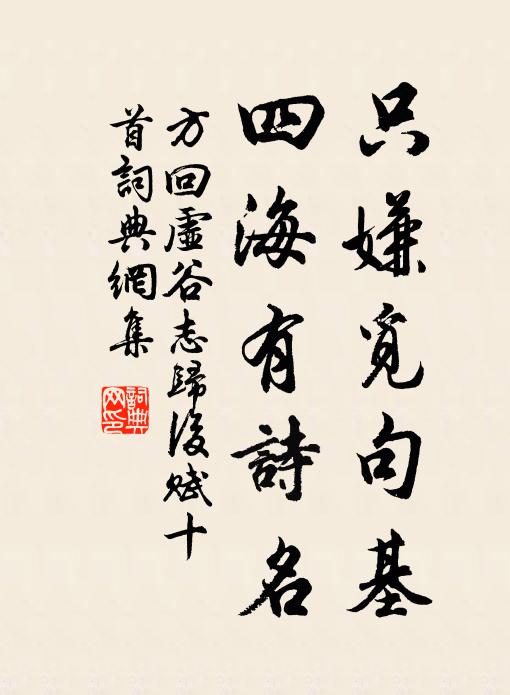 只嫌覓句基
四海有詩名
方回虛谷志歸後賦十
首詞典網集
詞典網印